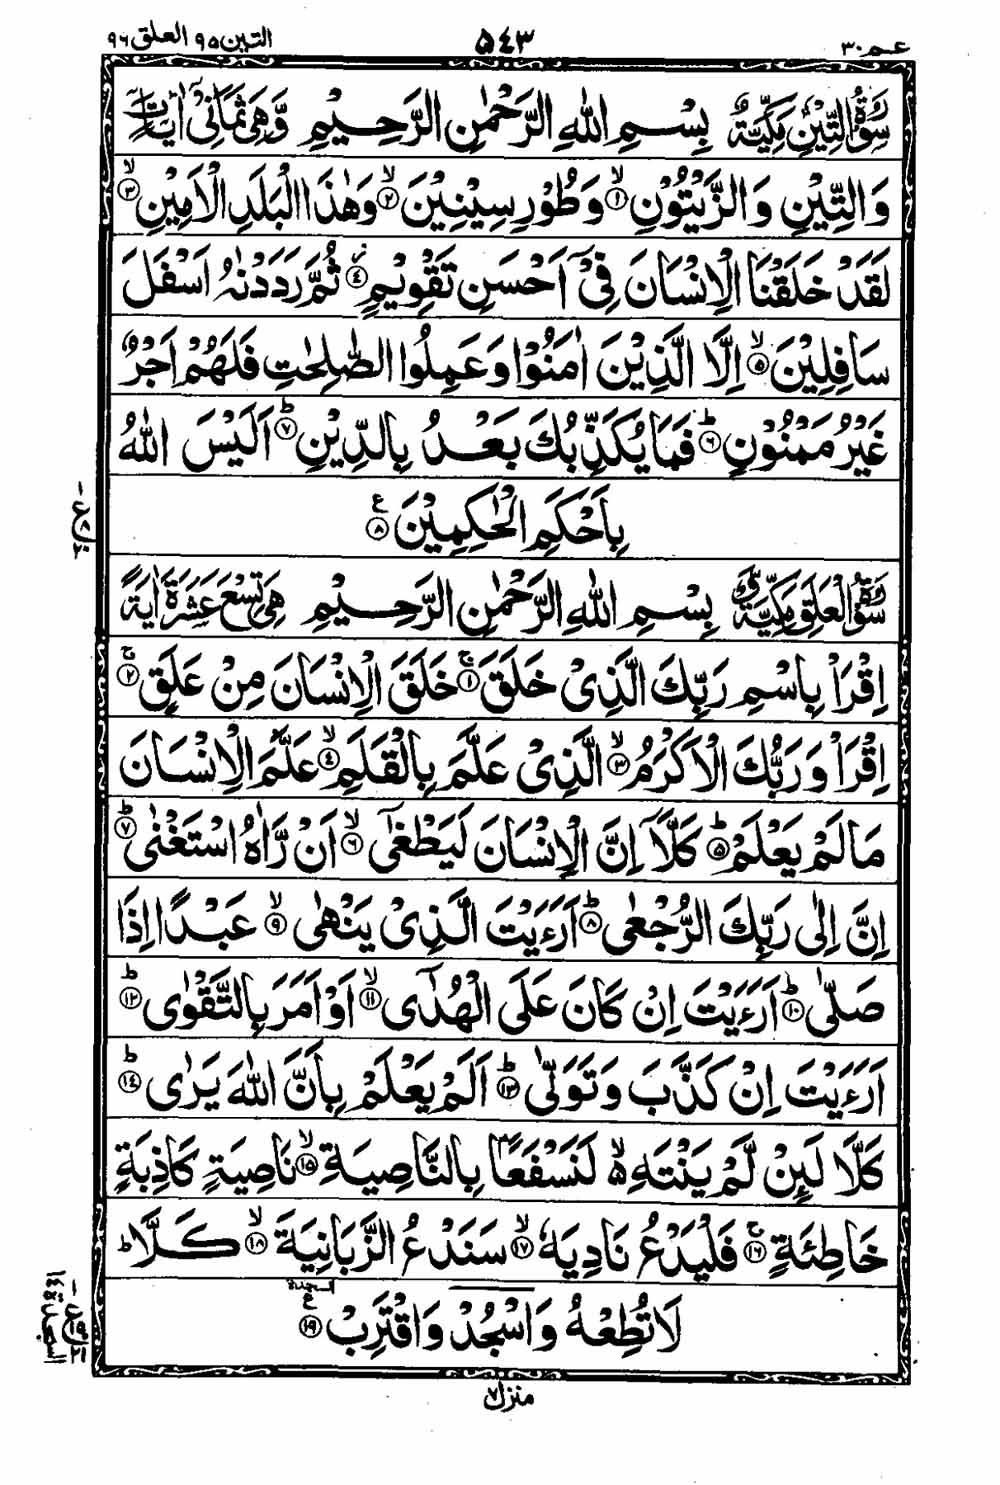 عـم ٣٠
٥٤٣
التين ٩٥ العلق ٩٦
سُوْرَةُ التِّيْنِ مَكِّيَّةٌ بِسْمِ اللّٰهِ الرَّحْمٰنِ الرَّحِيْمِ وَّهِىَ ثَمَانِىْ اٰيَاتٍ
وَالتِّيْنِ وَالزَّيْتُوْنِ ۙ﴿١﴾ وَطُوْرِ سِيْنِيْنَ ۙ﴿٢﴾ وَهٰذَا الْبَلَدِ الْاَمِيْنِ ۙ﴿٣﴾
لَقَدْ خَلَقْنَا الْاِنْسَانَ فِىْۤ اَحْسَنِ تَقْوِيْمٍ ۫﴿٤﴾ ثُمَّ رَدَدْنٰهُ اَسْفَلَ
سَافِلِيْنَ ۙ﴿٥﴾ اِلَّا الَّذِيْنَ اٰمَنُوْا وَعَمِلُوا الصّٰلِحٰتِ فَلَهُمْ اَجْرٌ
غَيْرُ مَمْنُوْنٍ ؕ﴿٦﴾ فَمَا يُكَذِّبُكَ بَعْدُ بِالدِّيْنِ ؕ﴿٧﴾ اَلَيْسَ اللّٰهُ
بِاَحْكَمِ الْحٰكِمِيْنَ ﴿٨﴾ ع
سُوْرَةُ الْعَلَقِ مَكِّيَّةٌ بِسْمِ اللّٰهِ الرَّحْمٰنِ الرَّحِيْمِ وَّهِىَ تِسْعَ عَشَرَةَ اٰيَةً
اِقْرَاْ بِاسْمِ رَبِّكَ الَّذِىْ خَلَقَ ۚ﴿١﴾ خَلَقَ الْاِنْسَانَ مِنْ عَلَقٍ ۚ﴿٢﴾
اِقْرَاْ وَرَبُّكَ الْاَكْرَمُ ۙ﴿٣﴾ الَّذِىْ عَلَّمَ بِالْقَلَمِ ۙ﴿٤﴾ عَلَّمَ الْاِنْسَانَ
مَا لَمْ يَعْلَمْ ؕ﴿٥﴾ كَلَّاۤ اِنَّ الْاِنْسَانَ لَيَطْغٰٓى ۙ﴿٦﴾ اَنْ رَّاٰهُ اسْتَغْنٰى ؕ﴿٧﴾
اِنَّ اِلٰى رَبِّكَ الرُّجْعٰى ؕ﴿٨﴾ اَرَءَيْتَ الَّذِىْ يَنْهٰى ۙ﴿٩﴾ عَبْدًا اِذَا
صَلّٰى ؕ﴿١٠﴾ اَرَءَيْتَ اِنْ كَانَ عَلَى الْهُدٰٓى ۙ﴿١١﴾ اَوْ اَمَرَ بِالتَّقْوٰى ؕ﴿١٢﴾
اَرَءَيْتَ اِنْ كَذَّبَ وَتَوَلّٰى ؕ﴿١٣﴾ اَلَمْ يَعْلَمْ بِاَنَّ اللّٰهَ يَرٰى ؕ﴿١٤﴾
كَلَّا لَئِنْ لَّمْ يَنْتَهِ ۙ۬ لَنَسْفَعًۢا بِالنَّاصِيَةِ ۙ﴿١٥﴾ نَاصِيَةٍ كَاذِبَةٍ
خَاطِئَةٍ ۚ﴿١٦﴾ فَلْيَدْعُ نَادِيَهٗ ۙ﴿١٧﴾ سَنَدْعُ الزَّبَانِيَةَ ۙ﴿١٨﴾ كَلَّا ؕ
لَا تُطِعْهُ وَاسْجُدْ وَاقْتَرِبْ ﴿١٩﴾ ع السجدة
منزل ٧